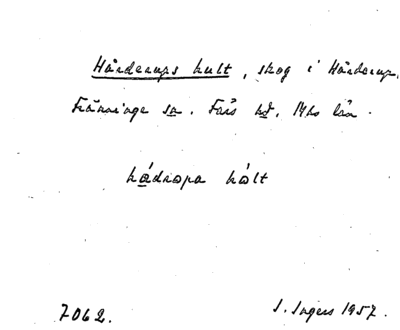 Hårderups hult, skog i Hårderup,
Tranninge sn. Färs hd. Mhs län.
hádrapa hált
7062. I. Ingers 1957.